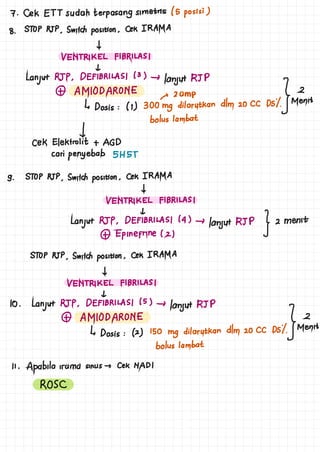 7. Cek ETT sudah terpasang simetris (5 posisi)
8. STOP RJP, Switch position, Cek IRAMA
↓
VENTRIKEL FIBRILASI
↓
Lanjut RJP, DEFIBRILASI (3) → lanjut RJP
⊕ AMIODARONE
2 amp
2 Menit
↳ Dosis : (1) 300 mg dilarutkan dlm 20 CC D5%
bolus lambat
↓
Cek Elektrolit + AGD
cari penyebab 5H5T
9. STOP RJP, Switch position, Cek IRAMA
↓
VENTRIKEL FIBRILASI
↓
Lanjut RJP, DEFIBRILASI (4) → lanjut RJP } 2 menit
⊕ Epinefrine (2)
STOP RJP, Switch position, Cek IRAMA
↓
VENTRIKEL FIBRILASI
↓
10. Lanjut RJP, DEFIBRILASI (5) → lanjut RJP
⊕ AMIODARONE
2 Menit
↳ Dosis : (2) 150 mg dilarutkan dlm 20 CC D5%
bolus lambat
11. Apabila irama sinus → Cek NADI
ROSC